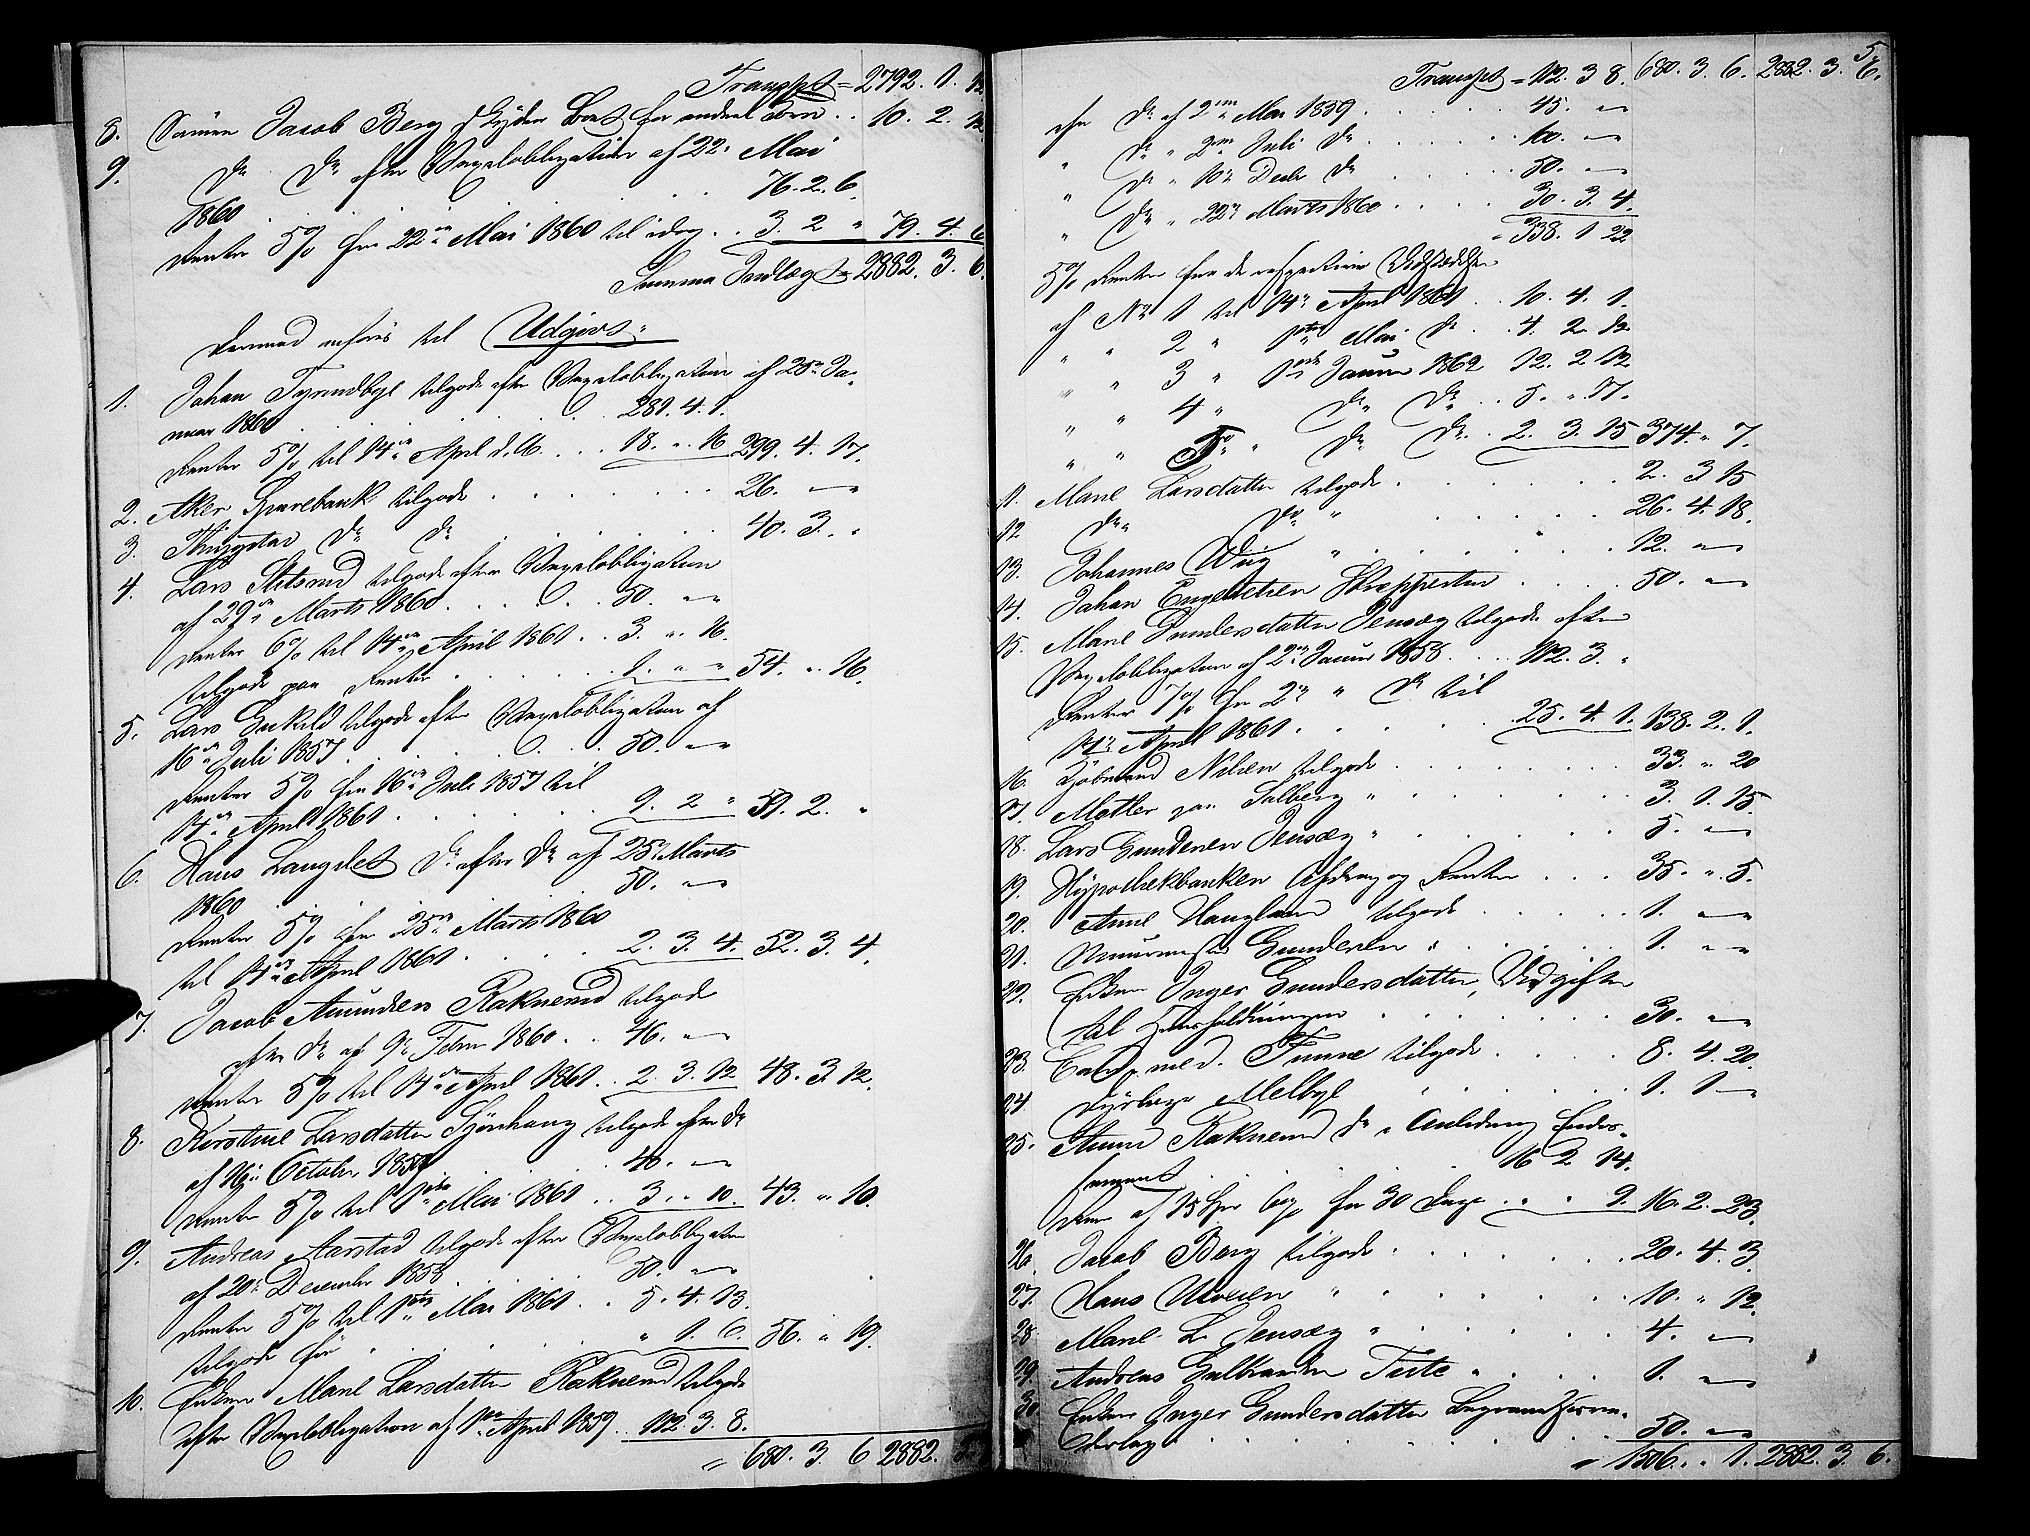 Transpt = 2792. 1. 12
8. Sønnen Jacob Berg f for andeel Korn . . 10. 2. 12
9. Do Do efter Vexelobligation af 22 Mai
1860 . . . . . 76. 2. 6
Renter 5% fra 22 Mai 1860 til idag . . 3. 2 " 79. 4. 6
Summa Indtægt = 2882. 3. 6.
Dermed anføres til Udgivt:
1. Johan Tyrmdbye tilgode efter Vexelobligation af 25 Ja-
nuar 1860 . . . . . 281. 4. 1.
Renter 5% til 14 April d. A. . . . 18. " 16 299. 4. 17.
2. Aker Sparebank tilgode . . . . . 26. " "
3. Ringstar Do Do . . . . . 40. 3. "
4. Lars tilgode efter Vexelobligation
af 29 Marts 1860 . . . . 50. " "
Renter 6% til 14 April 1861 . . 3. " 16.
tilgode paa Renter . . . . 1. " " 54. " 16.
5. Lars tilgode efter Vexelobligation af
16 Juli 1857 . . . . . 50. " "
Renter 5% fra 16 Juli 1857 til
14 April 1861 . . . . . 9. 2 " 59. 2. "
6. Hans Langslet Do efter Do af 25 Marts
1860 . . . . 50. " "
Renter 5% fra 25 Marts 1860
til 14 April 1861 . . . . 2. 3. 4. 52. 3. 4.
7. Jacob Amundsen Raknerud tilgode
efter Do af 9 Febru 1860 . . 46. " "
Renter 5% til 14 April 1861 . . 2. 3. 12 48. 3. 12.
8. Kirstine Larsdatter Sjønhaug tilgode efter Do
af 16 Octobr. 1859 . . . . 40. " "
Renter 5% til 1 Mai 1861 . . 3. " 10. 43. " 10.
9. Andreas Aarstad tilgode efter Vexelobligation
af 20 December 1858 . . . 50. " "
Renter 5% til 1 Mai 1861 . . 5. 4. 13.
tilgode før . . . . " 1. 6. 56. " 19.
10. Enken Marie Larsdatter Raknerud tilgode
efter Vexelobligation af 1 April 1859 . . 112. 3. 8.
= 680. 3. 6 2882. 3. 6
5
Transpt = 112. 3 8. 680. 3. 6. 2882. 3. 6.
efter Do af 2 Mai 1859 . . . . 45. " "
" Do " 2 Juli Do . . . . 100. " "
" Do " 10 Decbr Do . . . . 50. " "
" Do " 22 Marts 1860 . . . . 30. 3. 4.
= 338. 1 22
5% Renter fra de respective Udstedelser
af No 1 til 14 April 1861 . . 10. 4. 1.
" " 2 " 1 Mai Do . . 4. 2. 12
" " 3 " 1 Januar 1862 12. 2 12.
" " 4 " Do Do . . 5. " 17.
" " 5 " Do Do . . 2. 3. 15 374. " 7.
11. Marie Larsdatter tilgode . . . . . 2. 3 15
12 Do Do " . . . . . 26. 4. 18.
13. Johannes Wiig " . . . . . 12. " "
14. Johan Engebretsen . . . . 50. " "
15. Marie Gundersdatter Jensæg tilgode efter
Vexelobligation af 2 Januar 1858 . . . 112. 3. "
Renter 7% fra 2 " Do til
14 April 1861 . . . . . 25. 4. 1. 138. 2. 1.
16. Kjøbmand Nilsen tilgode . . . . 33. " 20
17. Møller paa Solberg " . . . . 3. 1. 15.
18. Lars Gundersen Jensæg " . . . . 5. " "
19. Hypothekbanken Afdrag og Renter . . . 35. " 5.
20. Anne Haugland tilgode . . . . 1. " "
21. Gundersen " . . . . 1. " "
22. Enken Inger Gundersdatter, Udgifter
til Huusholdningen . . . . . 30. " "
23. Cand. med. Finne tilgode . . . . 8. 4. 20
24 Dyrlæge Melbye . . . . . 1. 1 "
25. Amund Raknerud Do i Anledning Endos-
sement . . . . . 16 2 14.
Renter af 15 Spd 6% for 30 Dage . . " " 9. 16. 2. 23.
26. Jacob Berg tilgode . . . . . 20. 4. 3.
27. Hans Ulvesen " . . . . . 10. " 12.
28. Marie L. Jensæg " . . . . . 4. " "
29. Andreas Gulbrandsen Teite " . . . . 1. " "
30. Enken Inger Gundersdatter Begravelsesom-
kostninger . . . . . 50. " "
= 1506. " 1. 2882. 3. 6.